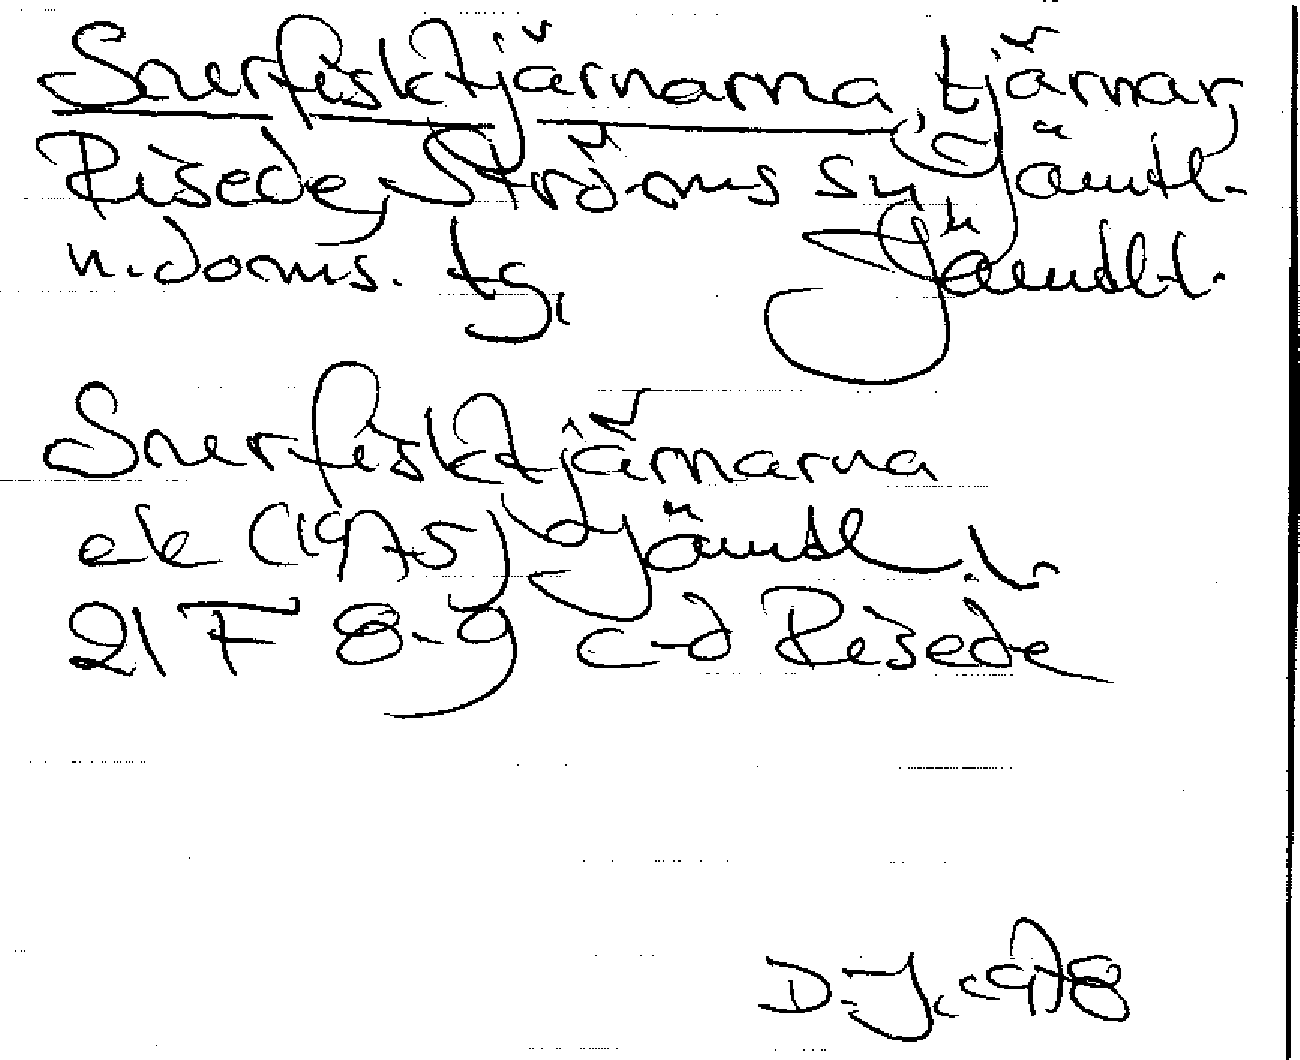 Snerfisktjärnarna, tjärnar,
Risede, Ströms sn, Jämtl.
n. doms. tg, Jämtl.l.
Snerfisktjärnarna
ek (1975) Jämtl. l.
21 F 8-9 c-d Risede
D-J. 1978